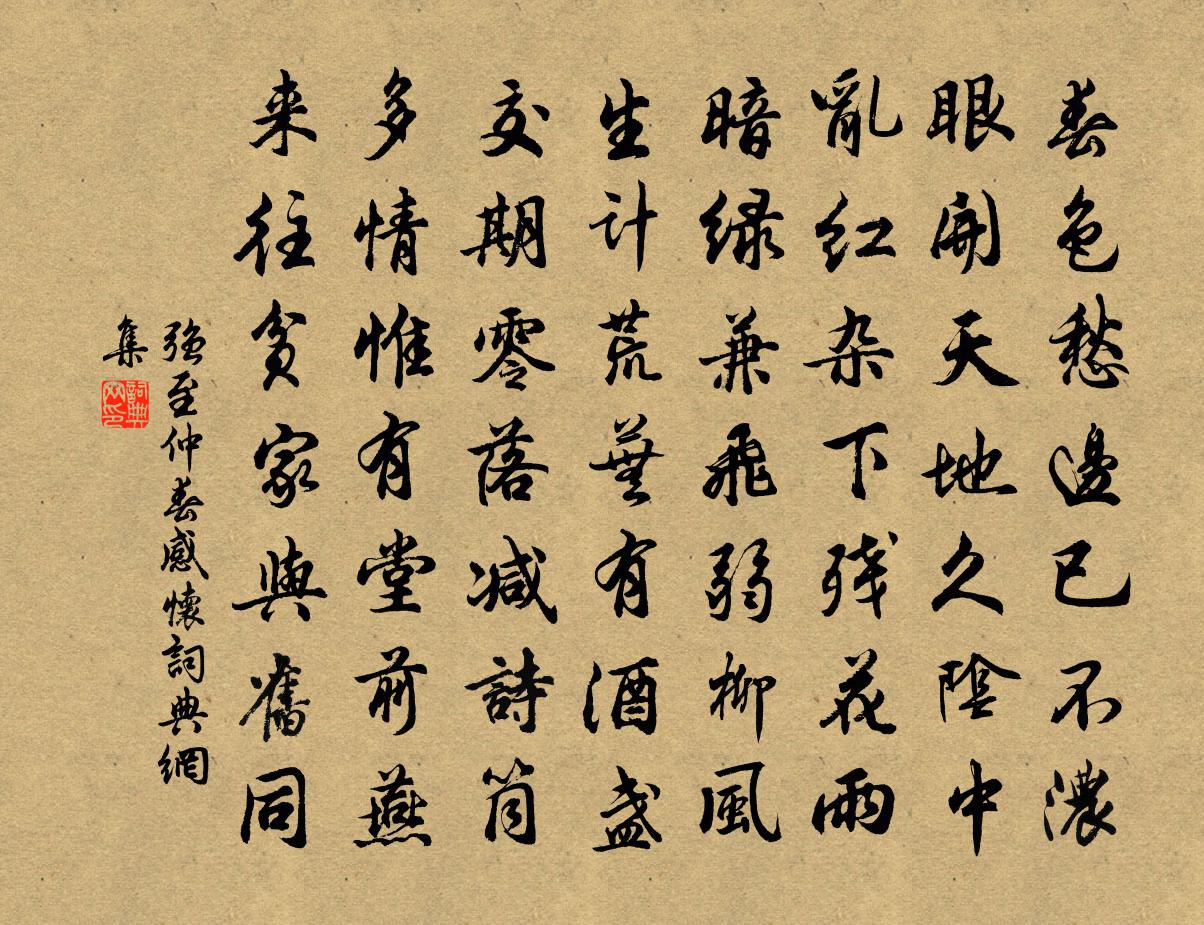 春色愁邊已不濃
眼開天地久陰中
亂红杂下残花雨
暗绿兼飛弱柳風
生计荒蕪有酒盏
交期零落减詩筒
多情惟有堂前燕
来往贫家與舊同
强至仲春感懷詞典網
集
詞典
网印